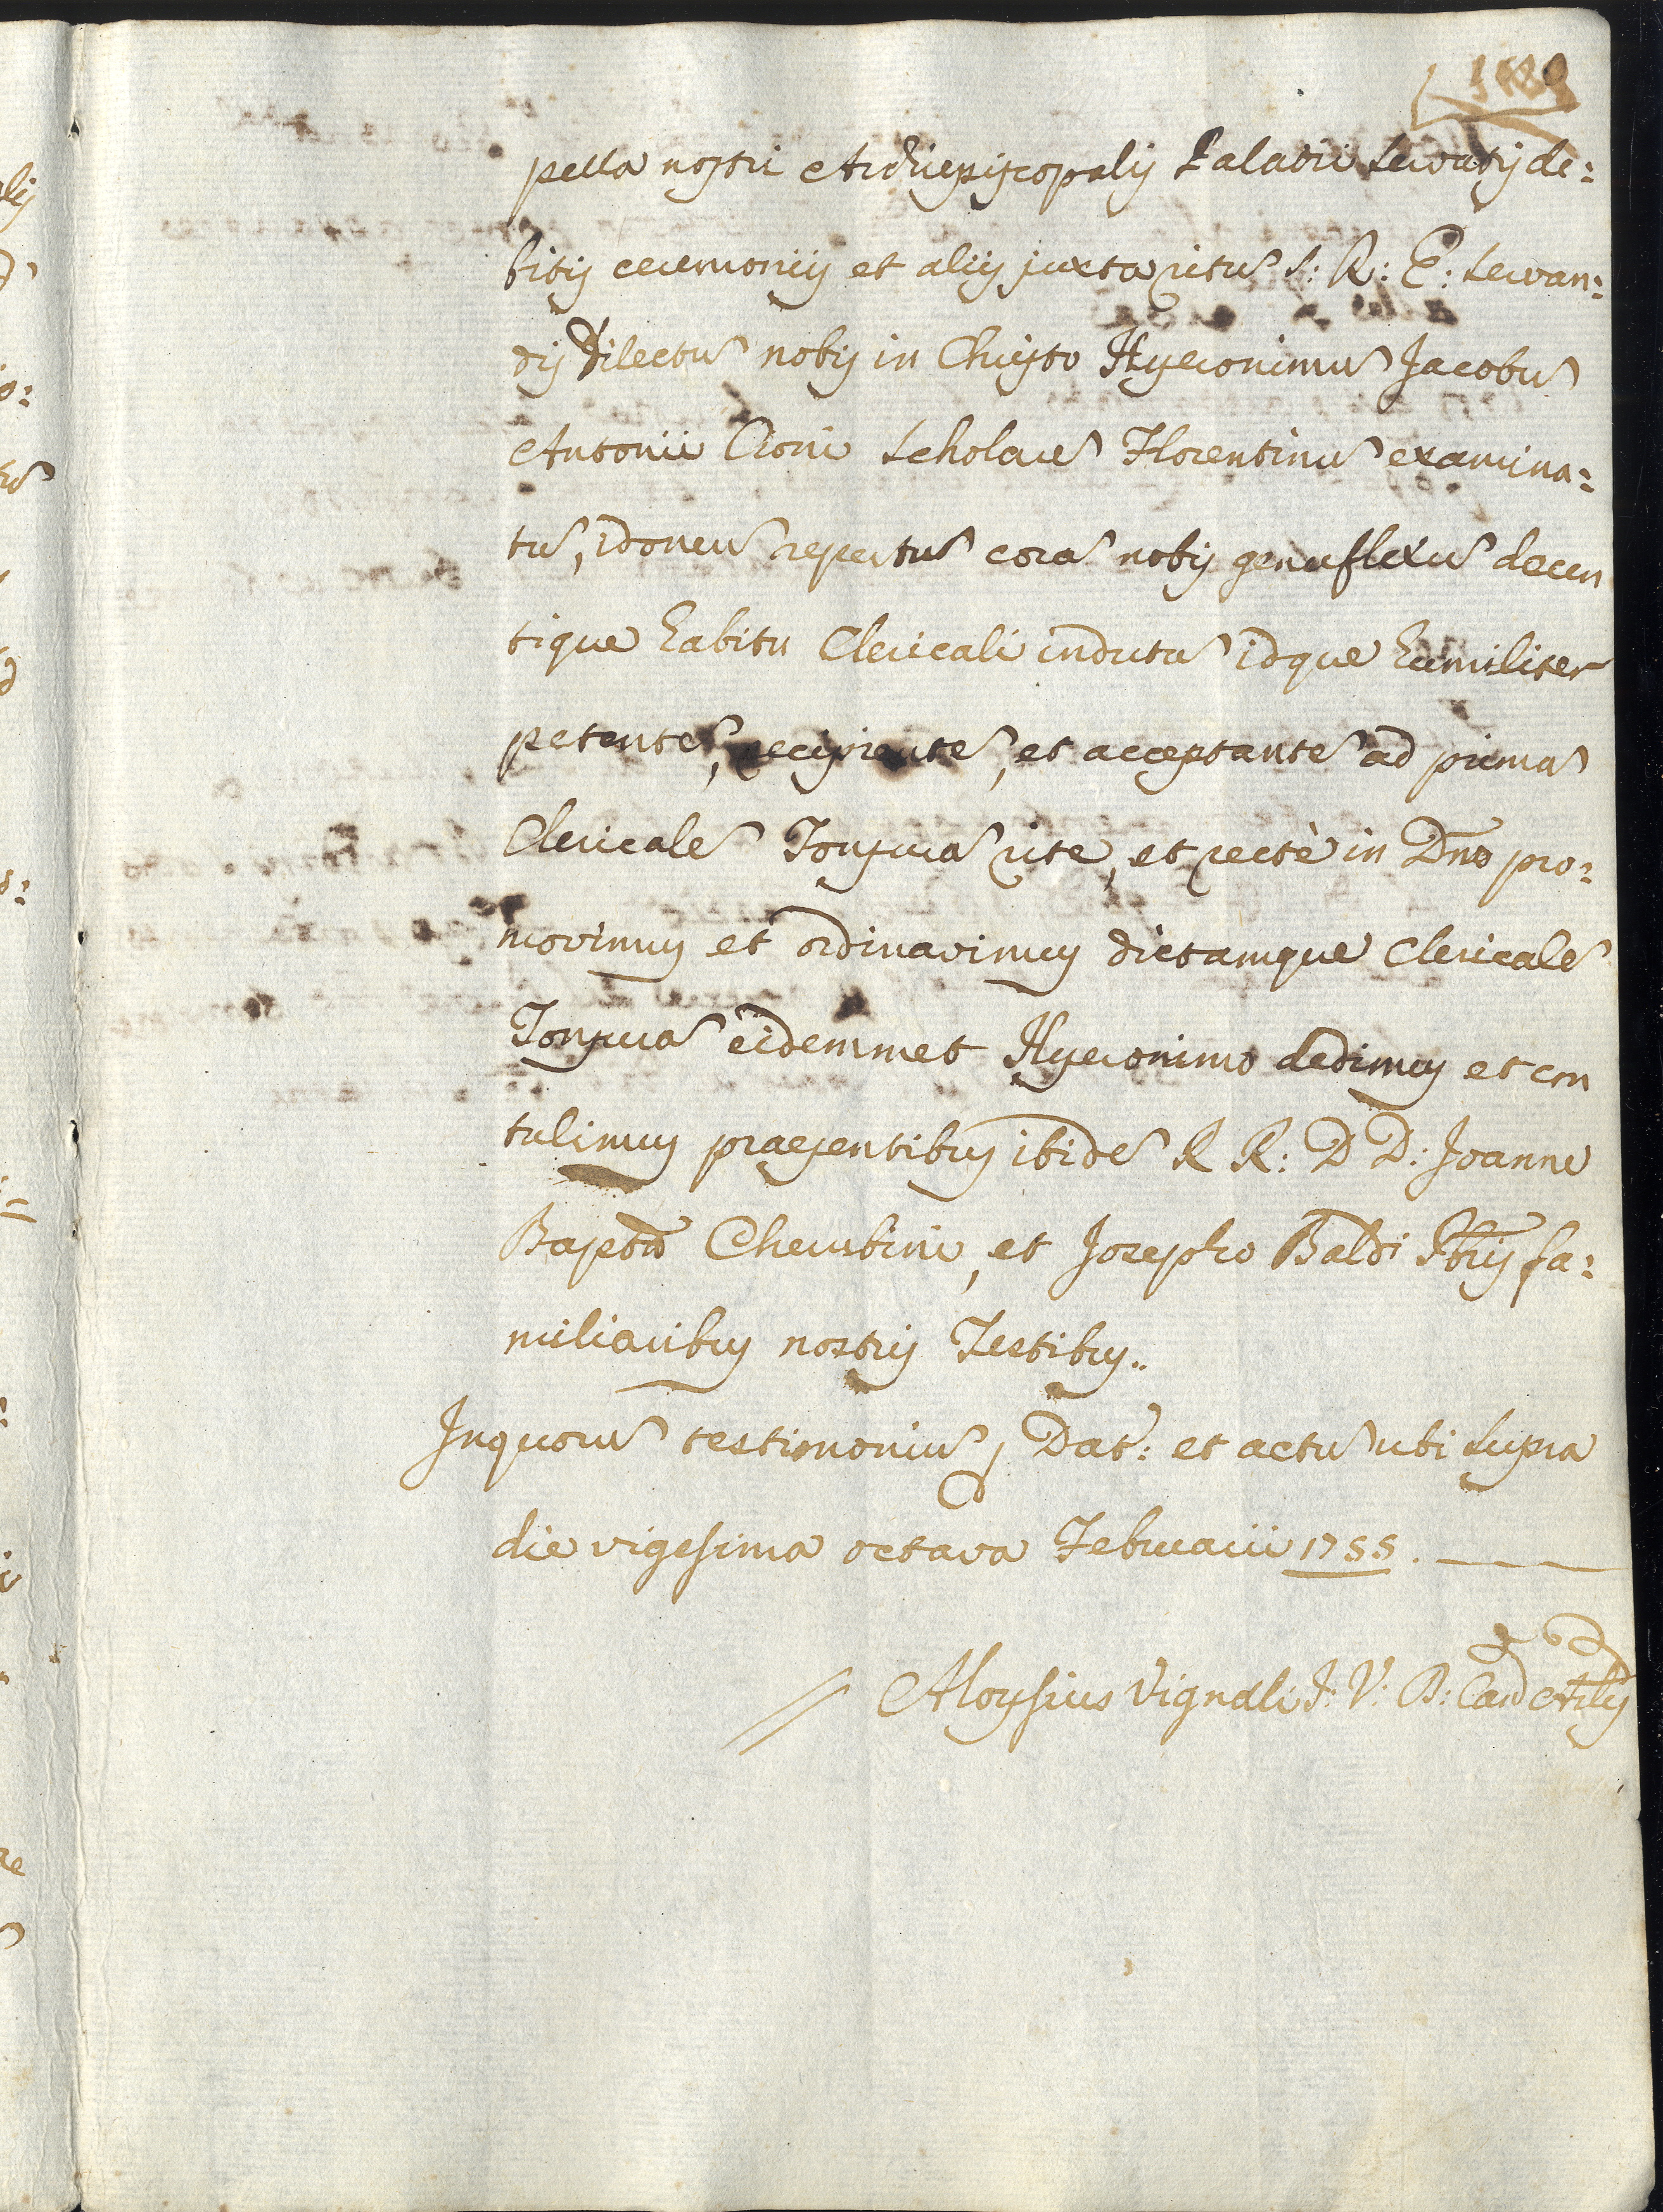 pella nostri Archiepiscopalis Palatii servatis de:
bitis ceremoniis et aliis juxta ritũ S: R: E: servan:
dis Dilectũ nobis in Christo Hyeronimũ Jacobũ
Antonii Cioni Scholarẽ Florentinũ examina:
tũ, idoneũ repertũ corã nobis genuflexũ decen
tique habitu Clericali indutũ idque humiliter
petentẽ, recipientẽ, et acceptantẽ ad primã
Clericalẽ Tonsurã rite, et rectè in Dño pro:
movimus et ordinavimus dictamque Clericalẽ
Tonsurã eidemmet Hyeronimo dedimus et con
tulimus praesentibus ibidẽ R R: D D: Joanne
Baptã Cherubini, et Josepho Baldi Pbris fa:
miliaribus nostris Testibus..
In quorũ testimoniũ, Dat: et actũ ubi supra
die vigesima octava Februarii 1755.
Aloysius Vignali J: V: D: Can